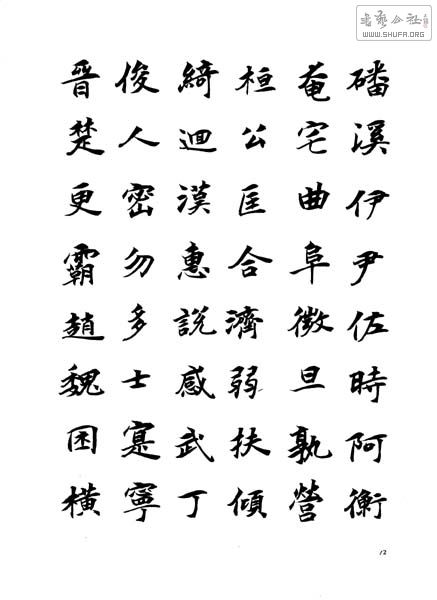 磻溪伊尹佐時阿衡
奄宅曲阜微旦孰營
桓公匡合濟弱扶傾
綺迴漢惠說感武丁
俊乂密勿多士寔寧
晋楚更霸趙魏困橫
12
書藝公社
WWW.SHUFA.ORG